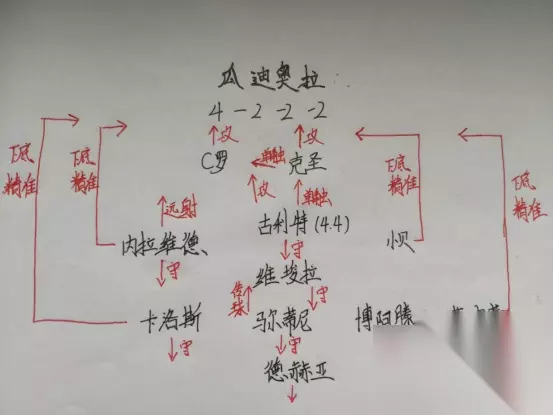 瓜迪奥拉
4-2-2-2
攻 攻
C罗 单触 克圣
下底精准 下底精准 下底精准 下底精准
攻 单触
远射
古利特(4.4)
内拉维德 守 小贝
守 维埃拉
传球 守
卡洛斯 马尔蒂尼 博阿滕
守 守
德赫亚